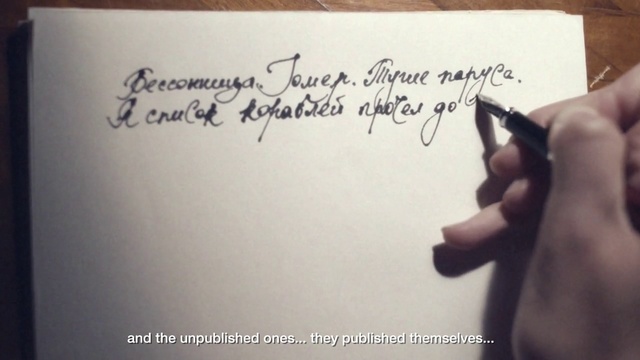 Бессонница. Гомер. Тугие паруса.
Я список кораблей прочёл до
and the unpublished ones... they published themselves...